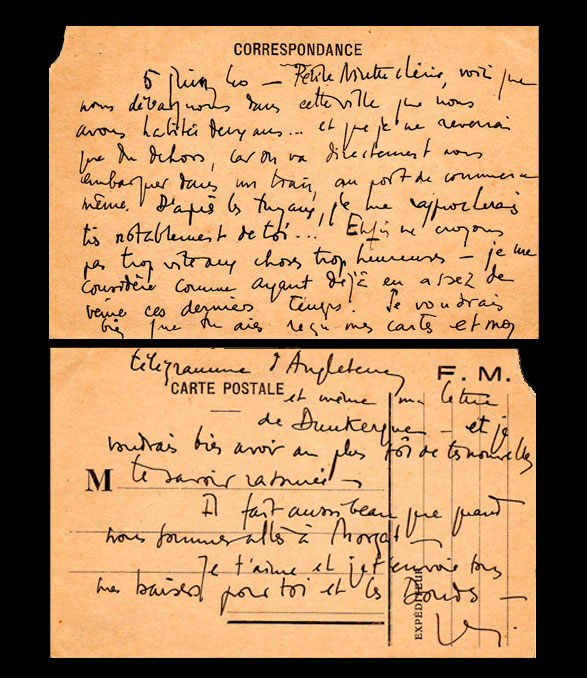 CORRESPONDANCE
5 Juin 40 – Petite Minette chérie, voici que
nous débarquons dans cette ville que nous
avons habitée deux ans... et que je ne reverrai
que du dehors, car on va directement nous
embarquer dans un train, au port de commerce
même. D'après les tuyaux, je me rapprocherais
très notablement de toi... Enfin ne croyons
pas trop vite aux choses trop heureuses – je me
considère comme ayant déjà eu assez de
veine ces derniers temps. Je voudrais
bien que tu aies reçu mes cartes et mon
télégramme d'Angleterre
F. M.
CARTE POSTALE
et même ma lettre
de Dunkerque – et je
voudrais bien avoir au plus tôt de tes nouvelles
M te savoir rassurée –
Il fait aussi beau que quand
nous sommes allés à Morgat –
Je t'aime et je t'envoie tous
mes baisers pour toi et les
EXPÉDITEUR